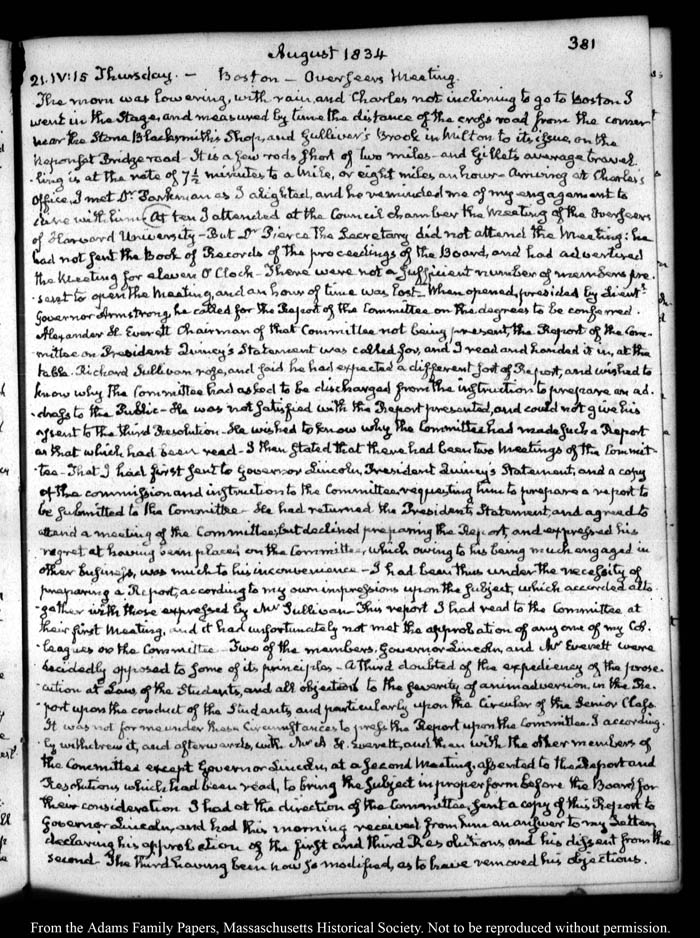 381
August 1834
21. IV:15 Thursday. — Boston — Overseers Meeting.
The morn was lowering, with rain, and Charles not inclining to go to Boston I
went in the Stage, and measured by time the distance of the cross road from the corner
near the Stone Blacksmith's Shop, and Gulliver's Brook in Milton to its issue, on the
Neponset Bridge road - It is a few rods short of two miles - and Gillet's average travel-
-ling is at the rate of 7½ minutes to a Mile, or eight miles an hour - Arriving at Charles's
Office, I met Dr Parkman as I alighted, and he reminded me of my engagement to
dine with him - At ten I attended at the Council chamber the Meeting of the Overseers
of Harvard University - But Dr Pierce the Secretary did not attend the Meeting: he
had not sent the Book of Records of the proceedings of the Board, and had advertised
the Meeting for eleven O'Clock - There were not a sufficient number of members pre-
-sent to open the Meeting, and an hour of time was lost - When opened, presided by Lieutt
Governor Armstrong, he called for the Report of the Committee on the degrees to be conferred.
Alexander H. Everett Chairman of that Committee not being present, the Report of the Com-
-mittee on President Quincy's Statement was called for, and I read and handed it in, at the
table. Richard Sullivan rose, and said he had expected a different sort of Report, and wished to
know why the Committee had asked to be discharged from the instruction to prepare an ad-
-dress to the Public - He was not satisfied with the Report presented, and could not give his
assent to the third Resolution - He wished to know why the Committee had made such a Report
as that which had been read - I then stated that there had been two Meetings of the Commit-
-tee - That I had first sent to Governor Lincoln, President Quincy's Statement, and a copy
of the commission and instruction to the Committee, requesting him to prepare a report to
be submitted to the Committee - He had returned the President's Statement, and agreed to
attend a meeting of the Committee, but declined preparing the Report, and expressed his
regret at having been placed on the Committee, which owing to his being much engaged in
other business, was much to his inconvenience - I had been thus under the necessity of
preparing a Report, according to my own impressions upon the subject, which accorded alto-
-gether with those expressed by Mr Sullivan - This report I had read to the Committee at
their first Meeting, and it had unfortunately not met the approbation of any one of my Col-
-leagues on the Committee - Two of the members, Governor Lincoln, and Mr Everett were
decidedly opposed to some of its principles - A third doubted of the expediency of the prose-
-cution at Law, of the Students, and all objection to the severity of animadversion, in the Re-
-port upon the conduct of the Students, and particularly upon the Circular of the Senior Class.
It was not for me under these Circumstances to press the Report upon the Committee. I according-
-ly withdrew it, and afterwards, with Mr A. H. Everett, and then with the other members of
the Committee except Governor Lincoln, at a second Meeting, assented to the Report and
Resolutions which had been read, to bring the subject in proper form before the Board for
their consideration I had at the direction of the Committee, sent a copy of this Report to
Governor Lincoln, and had this morning received from him an answer to my Letter,
declaring his approbation of the first and third Resolutions and his dissent from the
second - The third having been now so modified, as to have removed his objections.
From the Adams Family Papers, Massachusetts Historical Society. Not to be reproduced without permission.